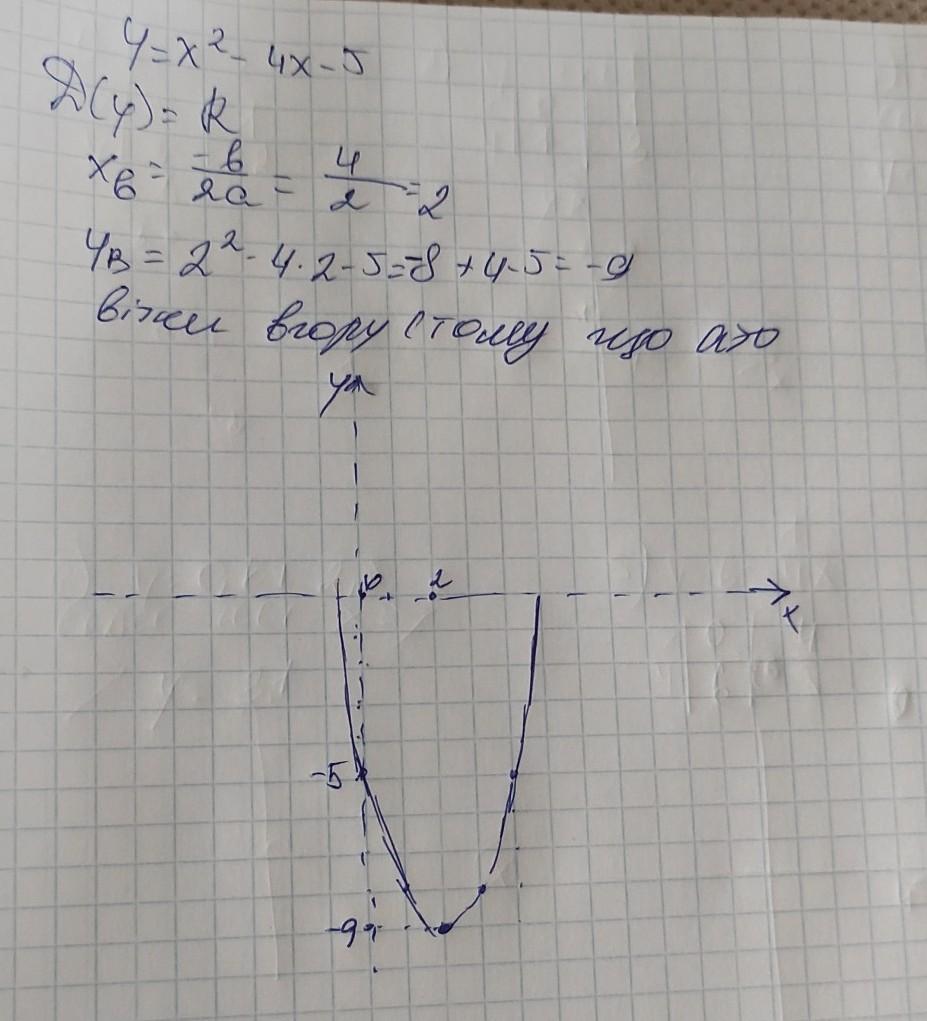 y = x² - 4x - 5
D(y) = R
xв = -b/2a = 4/2 = 2
yв = 2² - 4·2 - 5 = -8 + 4 - 5 = -9
вітки вгору (тому що a>0
y
0 2
x
-5
-9